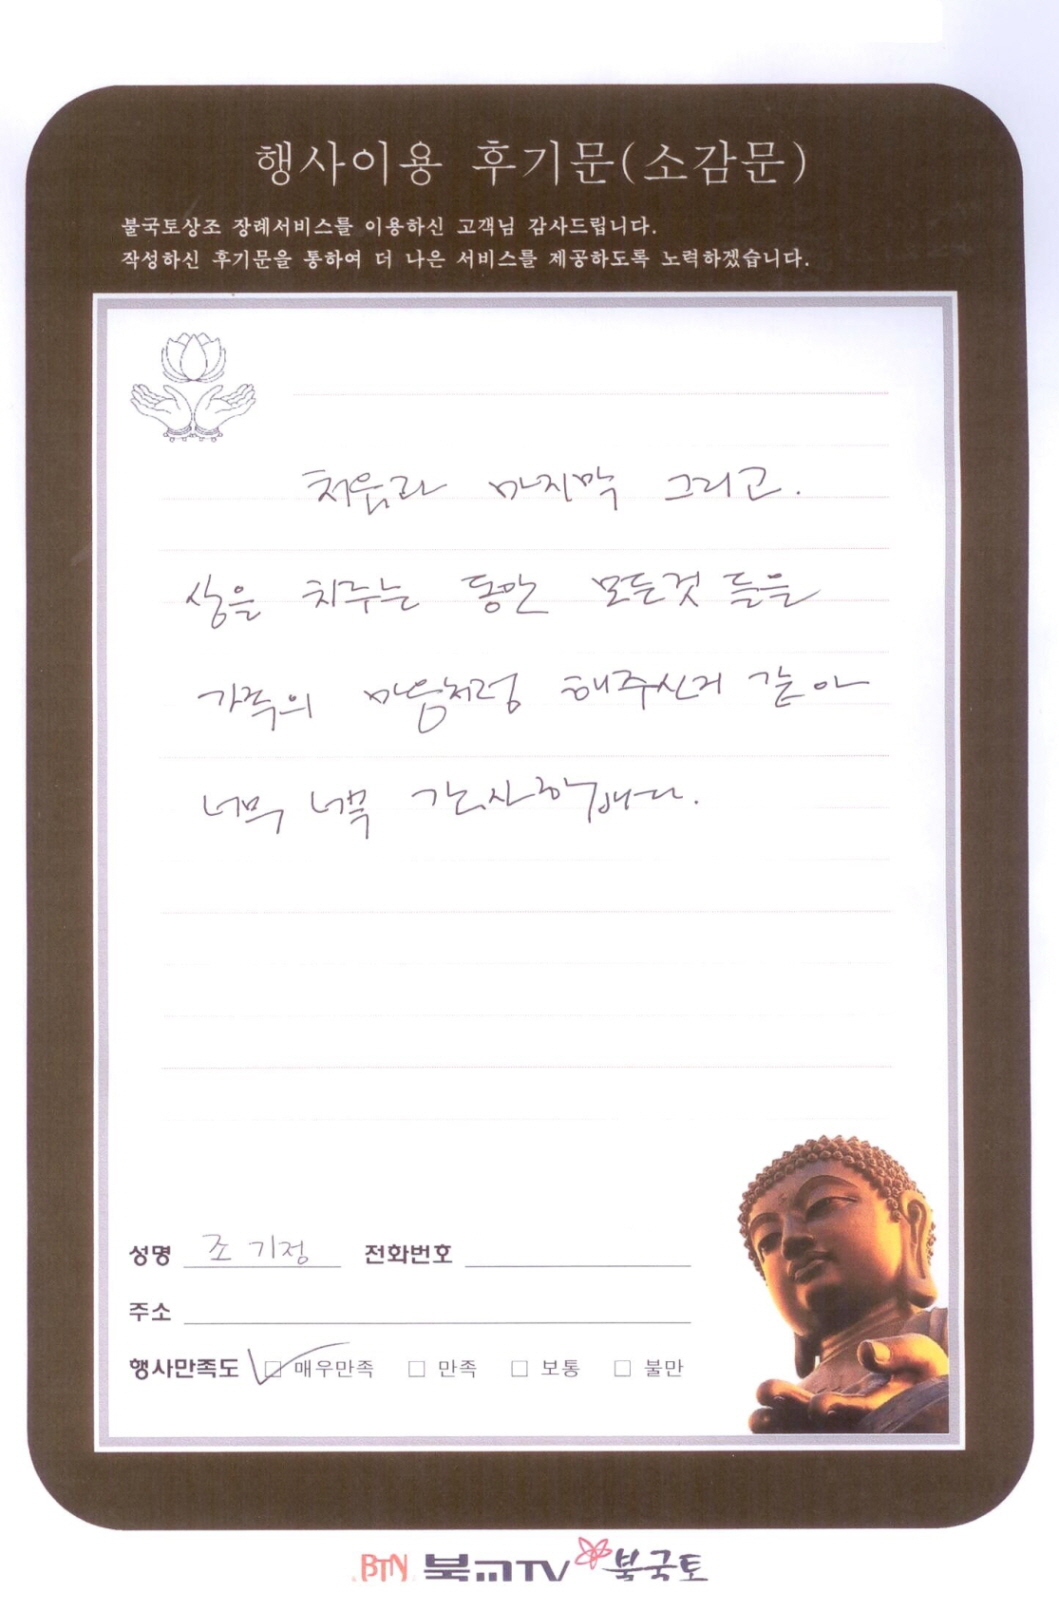 행사이용 후기문(소감문)
불국토상조 장례서비스를 이용하신 고객님 감사드립니다.
작성하신 후기문을 통하여 더 나은 서비스를 제공하도록 노력하겠습니다.
처음과 마지막 그리고.
상을 치루는 동안 모든것 들을
가족의 마음처럼 해주신거 같아
너무 너무 감사합니다.
성명 조기정 전화번호
주소
행사만족도 ☑ 매우만족 □ 만족 □ 보통 □ 불만
BTN 불교TV 불국토